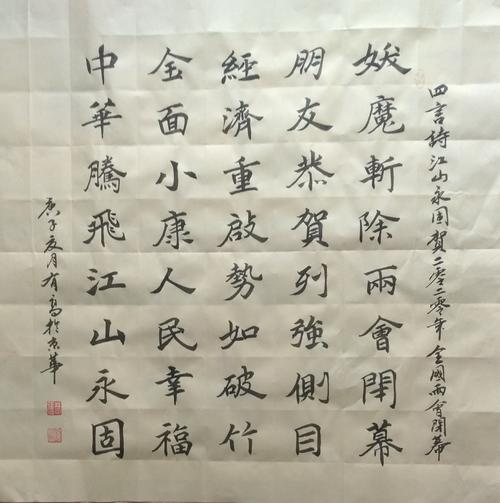 四言詩江山永固賀二零二零年全國兩會閉幕
妖魔斬除兩會閉幕
朋友恭賀列強側目
經濟重啟勢如破竹
全面小康人民幸福
中華騰飛江山永固
庚子夏月有為於京華